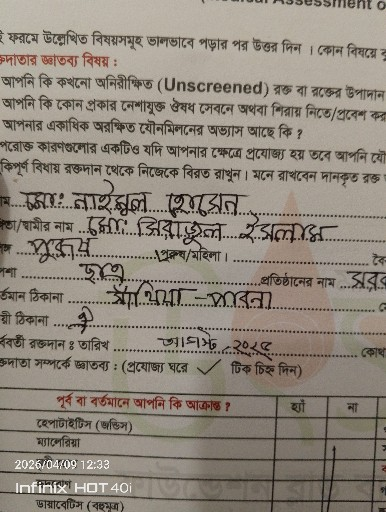 (Medical Assessment o
ই ফরমে উল্লেখিত বিষয়সমূহ ভালভাবে পড়ার পর উত্তর দিন । কোন বিষয়ে
ক্তদাতার জ্ঞাতব্য বিষয় :
আপনি কি কখনো অনিরীক্ষিত (Unscreened) রক্ত বা রক্তের উপাদান
আপনি কি কোন প্রকার নেশাযুক্ত ঔষধ সেবনে অথবা শিরায় নিতে/প্রবেশ কর
আপনার একাধিক অরক্ষিত যৌনমিলনের অভ্যাস আছে কি ?
পরোক্ত কারণগুলোর একটিও যদি আপনার ক্ষেত্রে প্রযোজ্য হয় তবে আপনি যৌ
কিপূর্ণ বিধায় রক্তদান থেকে নিজেকে বিরত রাখুন। মনে রাখবেন দানকৃত রক্ত
ম মো: নাইমুল হোসেন
তা/স্বামীর নাম মো: সিরাজুল ইসলাম
ঙ্গ পুরুষ (পুরুষ/মহিলা।
শা ছাত্র প্রতিষ্ঠানের নাম সরক
র্তমান ঠিকানা সাঁথিয়া - পাবনা
য়ী ঠিকানা ঐ
র্ববর্তী রক্তদান : তারিখ আগস্ট - ২০২৫ কোথ
ক্তদাতা সম্পর্কে জ্ঞাতব্য : (প্রযোজ্য ঘরে ✓ টিক চিহ্ন দিন)
পূর্ব বা বর্তমানে আপনি কি আক্রান্ত ? হ্যাঁ না
হেপাটাইটিস (জন্ডিস)
ম্যালেরিয়া
2026/04/09 12:33
Infinix HOT 40i
ডায়াবেটিস (বহুমূত্র)